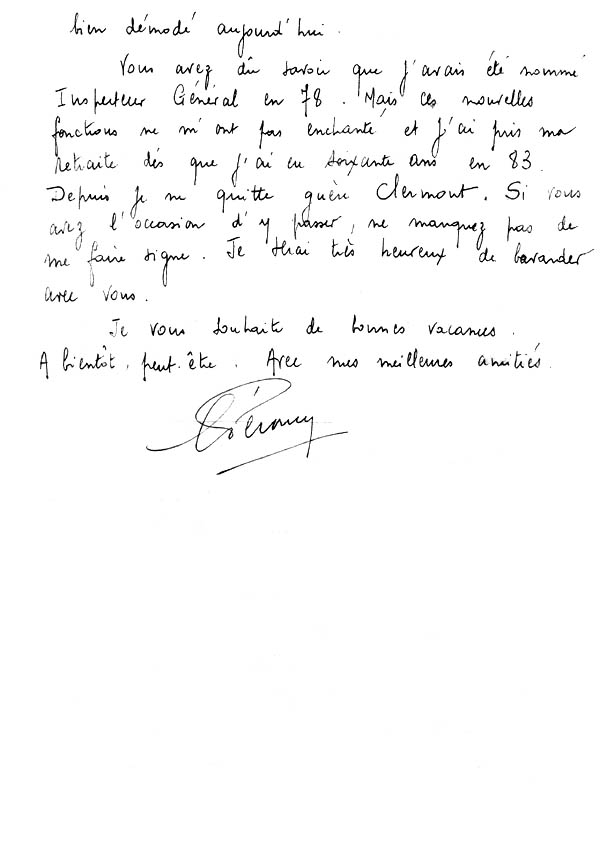 bien démodé aujourd'hui.
Vous avez dû savoir que j'avais été nommé
Inspecteur Général en 78. Mais ces nouvelles
fonctions ne m'ont pas enchanté et j'ai pris ma
retraite dès que j'ai eu soixante ans en 83.
Depuis je ne quitte guère Clermont. Si vous
avez l'occasion d'y passer, ne manquez pas de
me faire signe. Je serai très heureux de bavarder
avec vous.
Je vous souhaite de bonnes vacances.
A bientôt, peut-être. Avec mes meilleures amitiés.